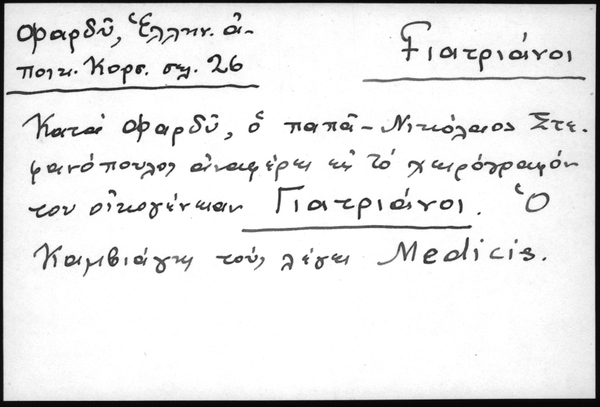 Φαρδῦ, Ἑλλην. ἀ-
ποικ. Κορσ. σελ. 26
Γιατριάνοι
Κατὰ Φαρδῦ, ὁ παπᾶ-Νικόλαος Στε-
φανόπουλος ἀναφέρει εἰς τὸ χειρόγραφόν
του οἰκογένειαν Γιατριάνοι. Ὁ
Καμβιάγης τοὺς λέγει Medicis.